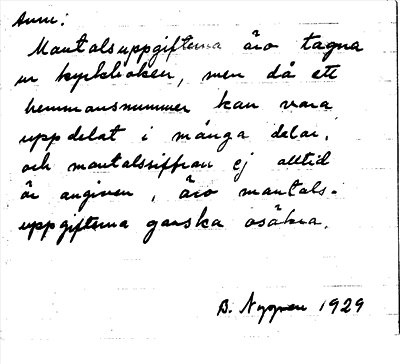 Anm:
Mantalsuppgifterna äro tagna
ur kyrkboken, men då ett
hemmansnummer kan vara
uppdelat i många delar,
och mantalssiffran ej alltid
är angiven, äro mantals-
uppgifterna ganska osäkra.
B. Nygren 1929